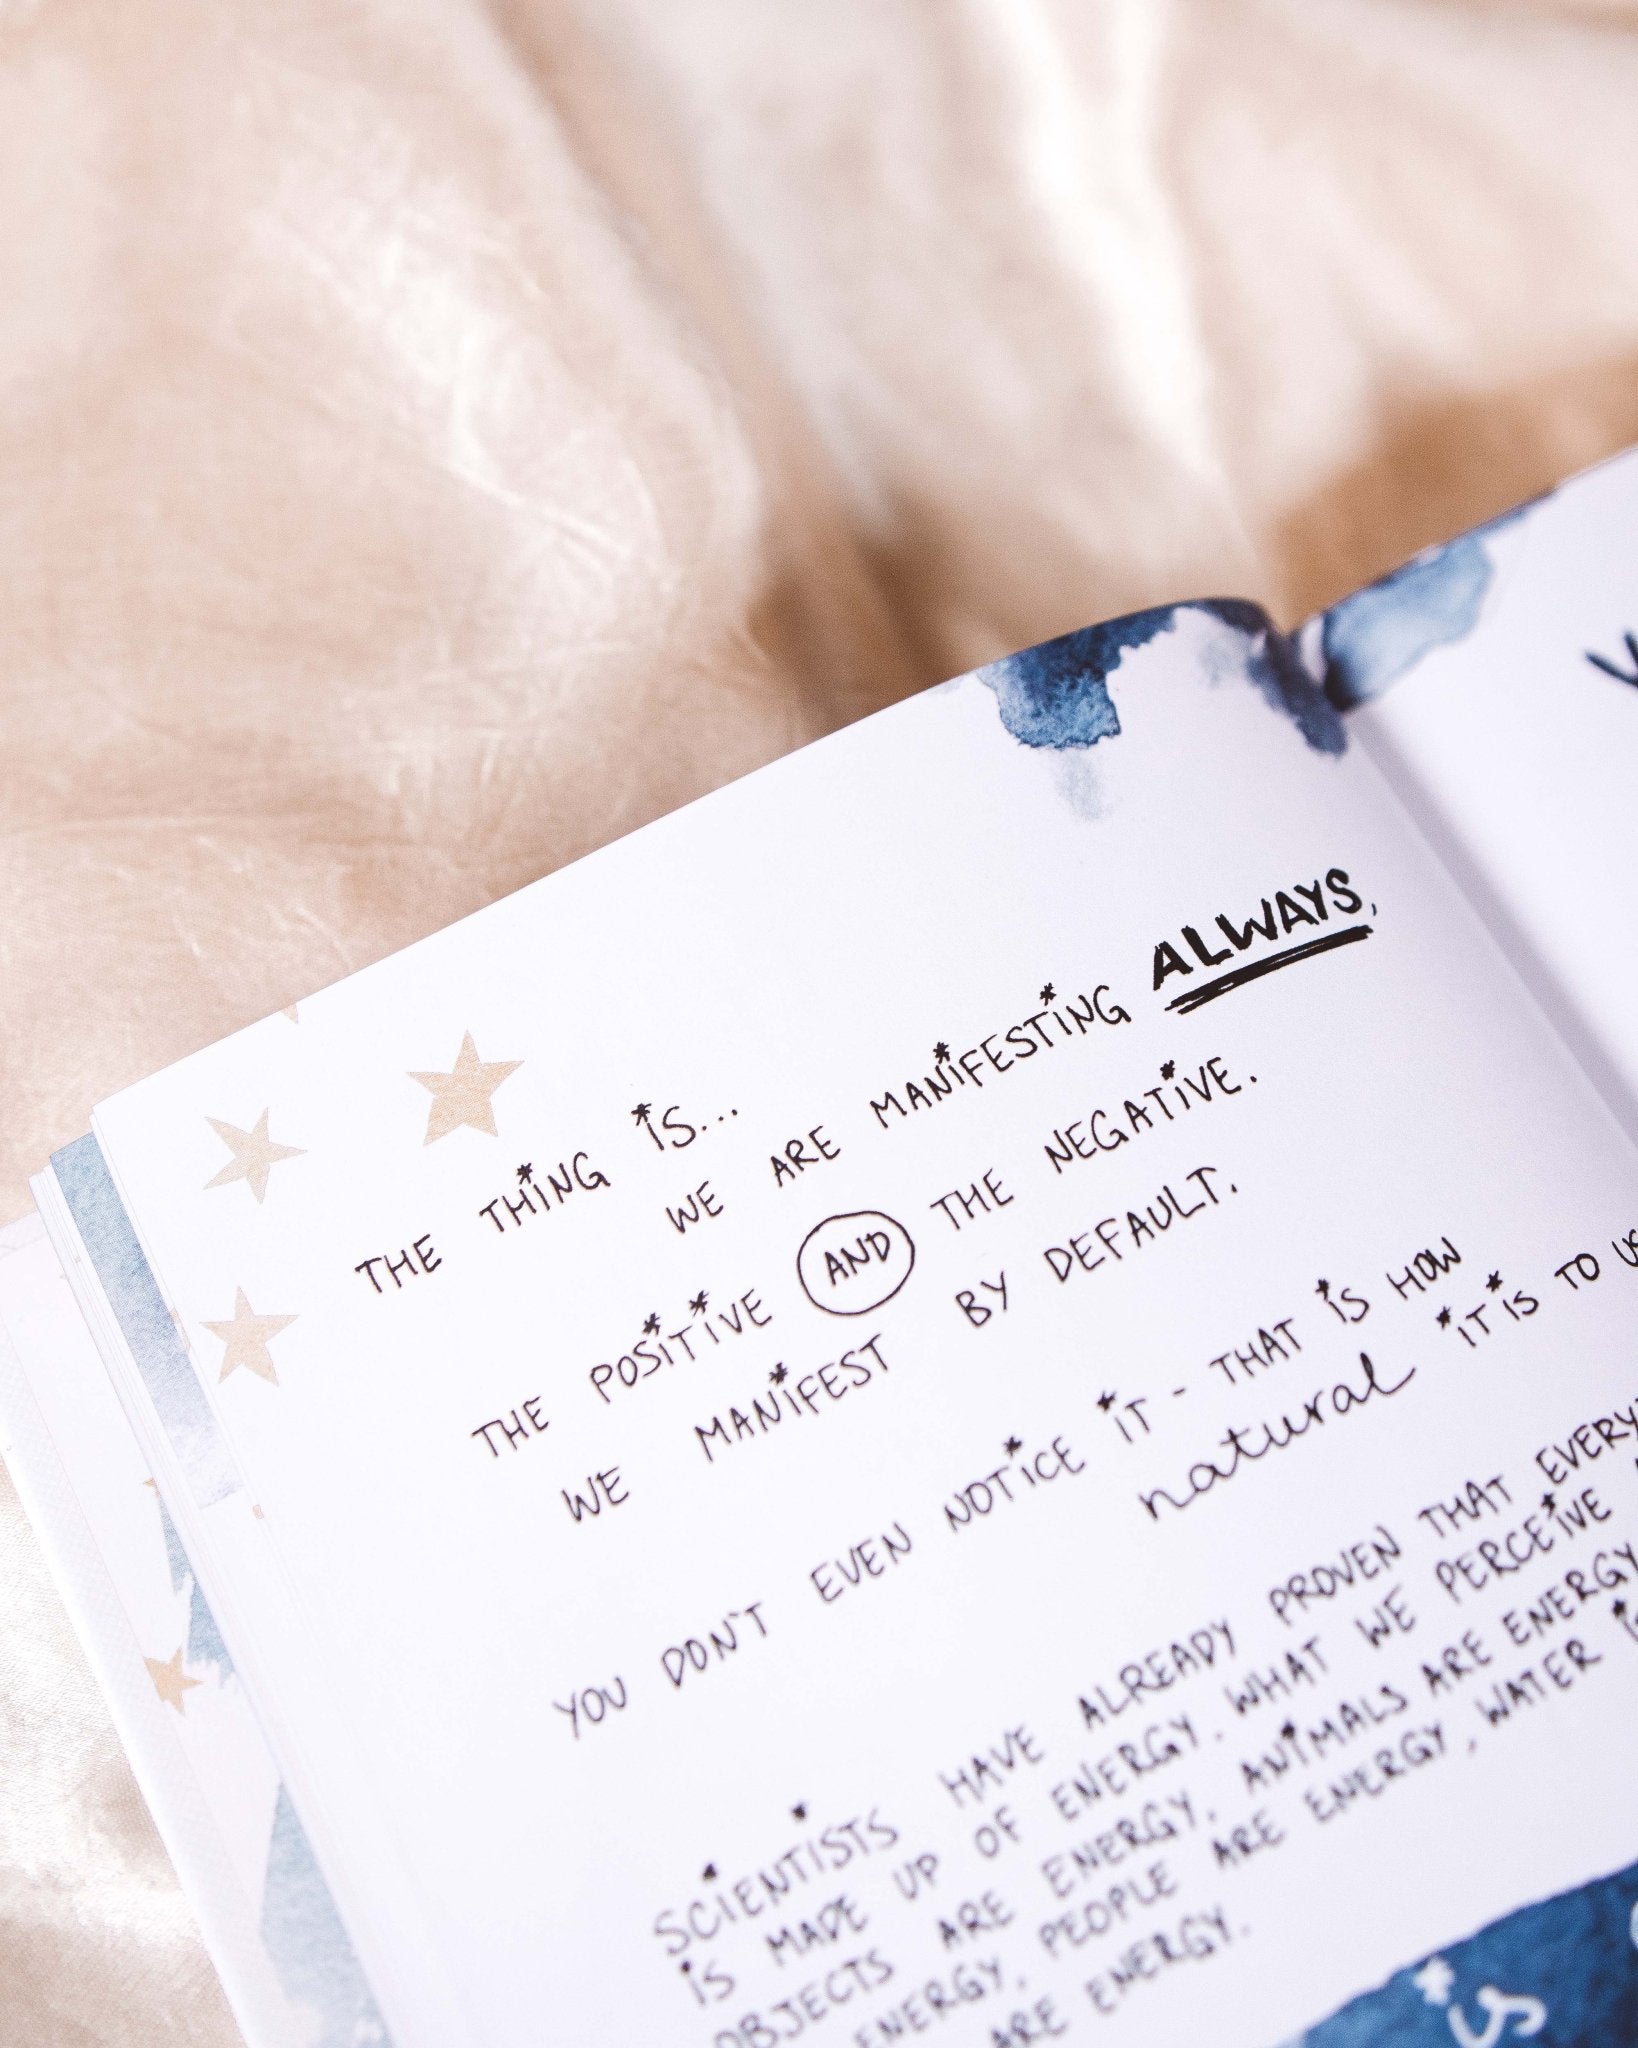 THE THING IS...
WE ARE MANIFESTING ALWAYS,
THE POSITIVE AND THE NEGATIVE.
WE MANIFEST BY DEFAULT.
YOU DON'T EVEN NOTICE IT - THAT IS HOW
natural IT IS TO US
SCIENTISTS HAVE ALREADY PROVEN THAT
IS MADE UP OF ENERGY. WHAT WE PERCEIVE
OBJECTS ARE ENERGY. ANIMALS ARE ENERGY
ENERGY. PEOPLE ARE ENERGY, WATER IS
ARE ENERGY.
is